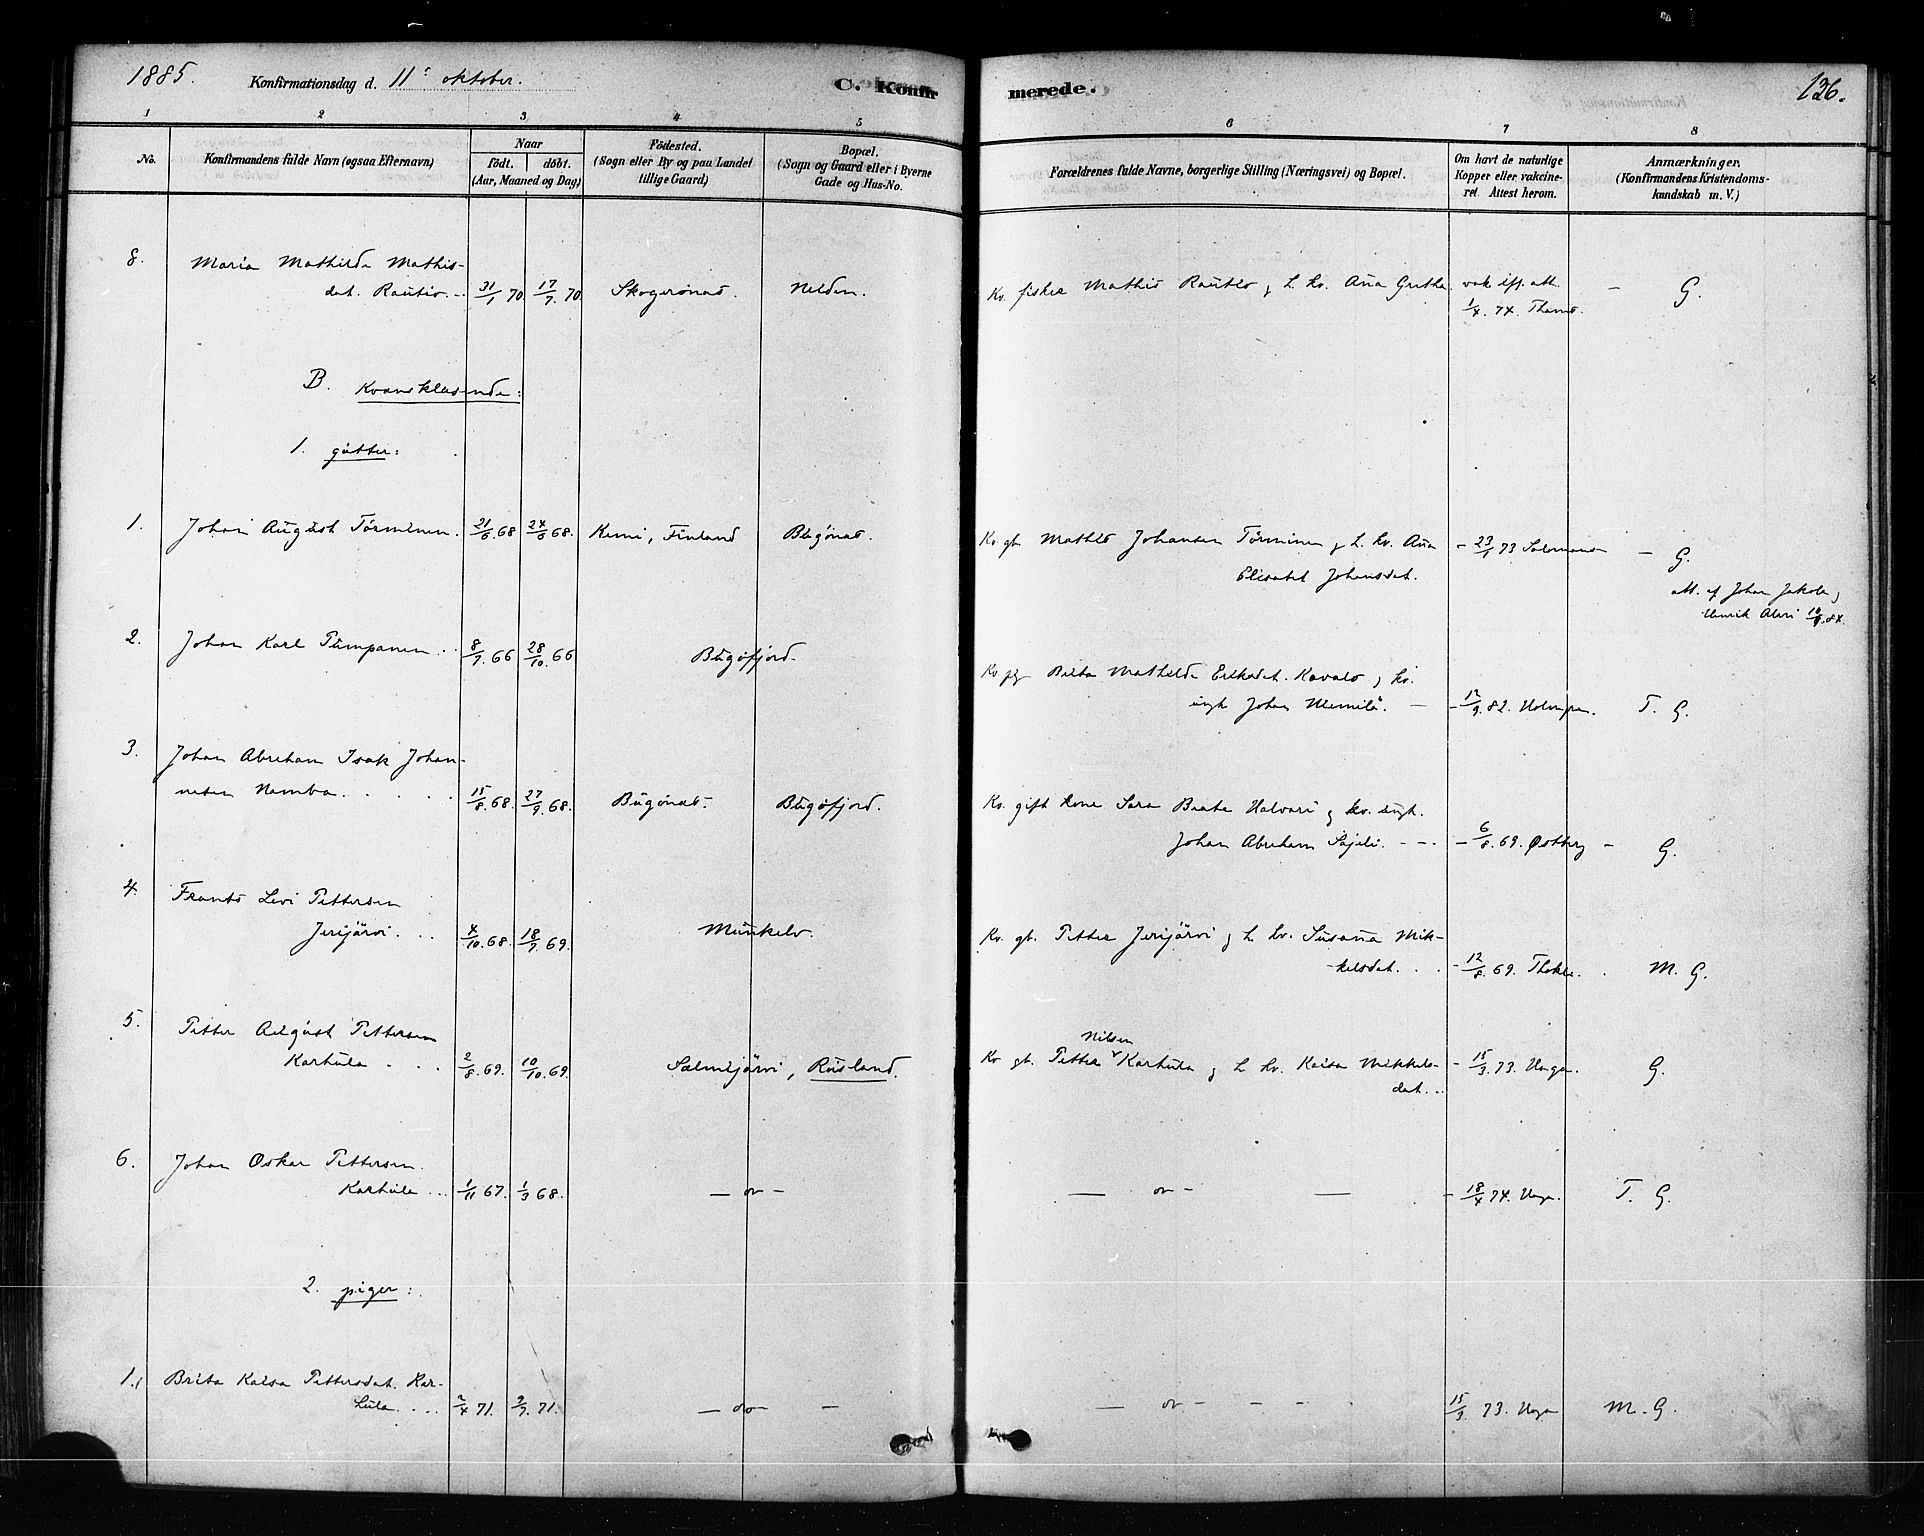 1885. Konfirmationsdag d. 11' oktober. C. Konfirmerede. 136.
1 2 3 4 5 6 7 8
No. Konfirmandens fulde Navn (ogsaa Efternavn)
Naar
født. døbt.
(Aar, Maaned og Dag)
Fødested.
(Sogn eller By og paa Landet
tillige Gaard)
Bopæl.
(Sogn og Gaard eller i Byerne
Gade og Hus-No.
Forældrenes fulde Navne, borgerlige Stilling (Næringsvei) og Bopæl.
Om havt de naturlige
Kopper eller vakcine-
ret. Attest herom.
Anmærkninger.
(Konfirmandens Kristendoms-
kundskab m. V.)
8. Maria Mathilde Mathis-
dat. Rautio. 31/1 70 17/7 70. Skogerønæs. Neiden. Kv. fisker Mathis Rautio & h. kv. Ana Grethe. vak. ifl. att.
1/4. 74. G.
B. Kvænsktalende:
1. gutter:
1. Johan August Törminen. 21/6 68 24/6 68. Kemi, Finland Bugønæs. Kv. gb. Mathis Johansen Törminen & h. kv. Ana - 23/1 73 G.
Elisabet Johansdat.
att. af Johan Jakola &
2. Johan Karl Pumpanen. 8/7 66 28/10. 66 Bugøfjord. Kv. pg. Brita Mathilde Eriksdat. Kavalo & kv.
ungk. Johan - 12/9. 82. T. G.
3. Johan Abraham Isak Johan-
nesen Hamba. 15/8. 68. 27/9. 68. Bugønæs. Bugøfjord. Kv. gift kone Sara Beate Halvari & kv. ungk.
Johan Abraham - 6/8. 69. Østberg - G.
4. Frants Levi Pettersen
Jerijärvi. 4/10. 68. 18/7. 69. Munkelv. Kv. gb. Petter Jerijärvi & h. kv. Susana Mik-
kelsdat. - 12/8. 69. M. G.
5. Petter August Pettersen
Karhula 2/8. 69. 10/10. 69. Salmijärvi, Rusland. Kv. gb. Petter Nilsen Karhula & h. kv. Kaisa Mikkels-
dat. - 15/3. 73. Unga. G.
6. Johan Oskar Pettersen
Karhula 1/11 67. 1/3 68. — do — — do — — - 18/4 74. Unga. T. G.
2. piger:
1. Brita Kaisa Pettersdat. Kar-
hula. 2/4 71. 2/7. 71. — do — — do — 15/3. 73. Unga M. G.